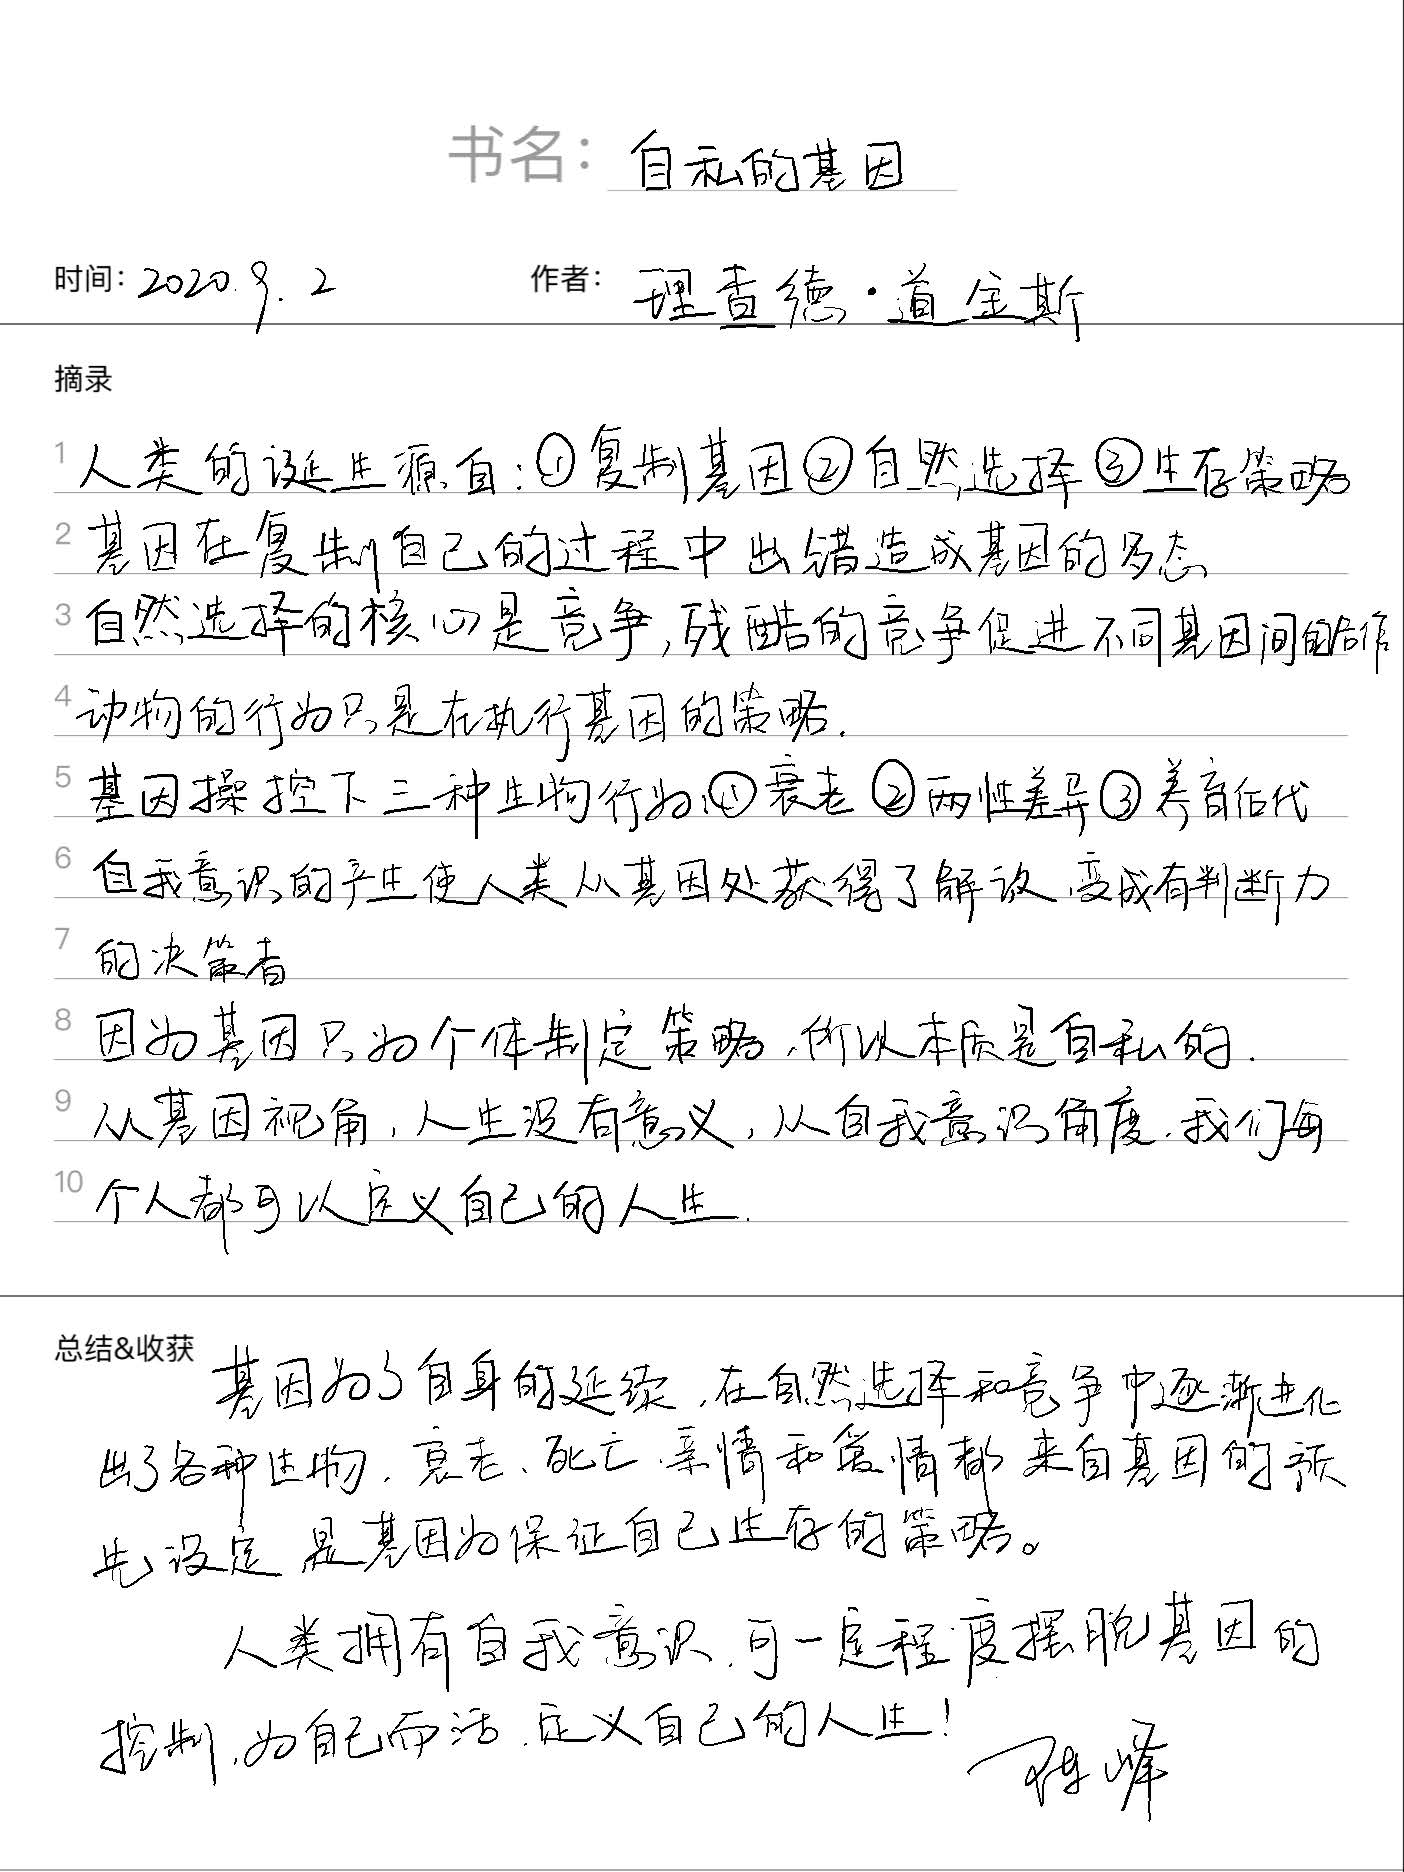 书名：自私的基因
时间：2020.9.2 作者：理查德·道金斯
摘录
1 人类的诞生源自：①复制基因②自然选择③生存策略
2 基因在复制自己的过程中出错造成基因的多态
3 自然选择的核心是竞争,残酷的竞争促进不同基因间的合作
4 动物的行为只是在执行基因的策略.
5 基因操控下三种生物行为:①衰老②两性差异③养育后代
6 自我意识的产生使人类从基因处获得了解放,变成有判断力
7 的决策者
8 因为基因只为个体制定策略,所以本质是自私的.
9 从基因视角,人生没有意义,从自我意识角度,我们每
10 个人都可以定义自己的人生.
总结&收获
基因为了自身的延续,在自然选择和竞争中逐渐进化
出了各种生物,衰老、死亡、亲情和爱情都来自基因的预
先设定是基因为保证自己生存的策略。
人类拥有自我意识,可一定程度摆脱基因的
控制,为自己而活,定义自己的人生!
陈峰